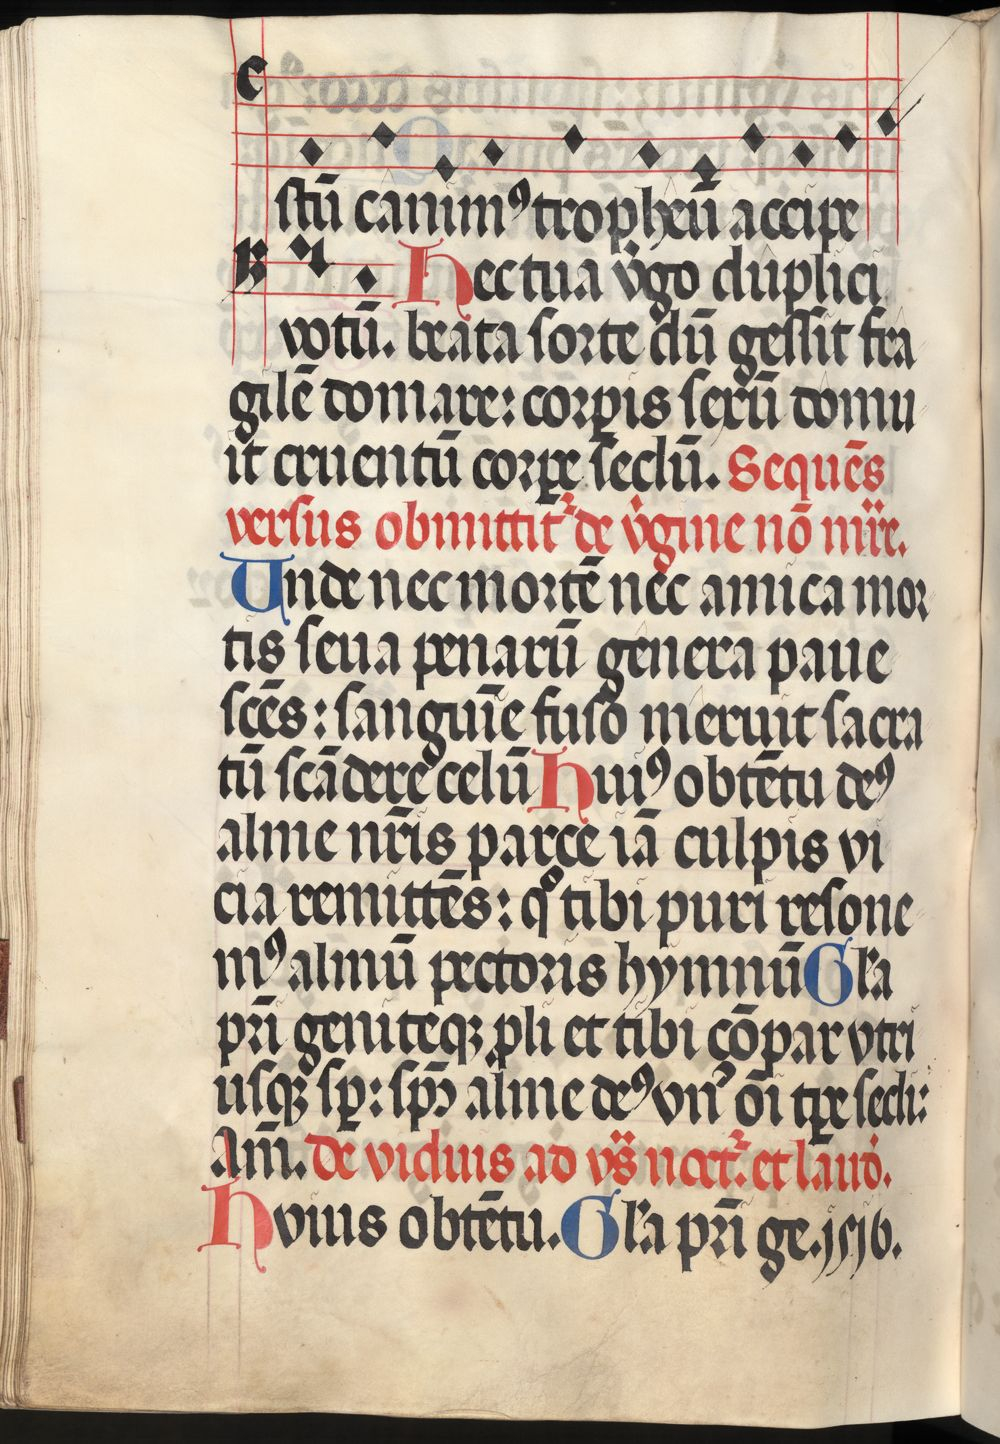 stū canimꝰ tropheū accipe
Hec tua v̓go duplici
votū. beata sorte dū gessit fra
gilē domare: corpis sexū domu
it cruentū corpe seclū. Sequēs
versus obmittit̓ de v̓gine nō mr̄e.
Unde nec mortē nec amica mor
tis seua penarū genera paue
scēs: sanguīe fuso meruit sacra
tū scādere celū Huiꝰ obtētu deꝰ
alme nr̄is parce iā culpis vi
cia remittēs: qͦ tibi puri resone
mꝰ almū pectoris hymnū Gl̓a
pr̄i geniteqꝫ pli et tibi cōpar vtri
usqꝫ sp̄: sp̄s alme deꝰ vn̓ oī tp̄e secli:
Am̄. De viduis ad vs̄ noct̓. et laud̓.
Hvius obtētu. Gl̓a pr̄i ge. 1516.